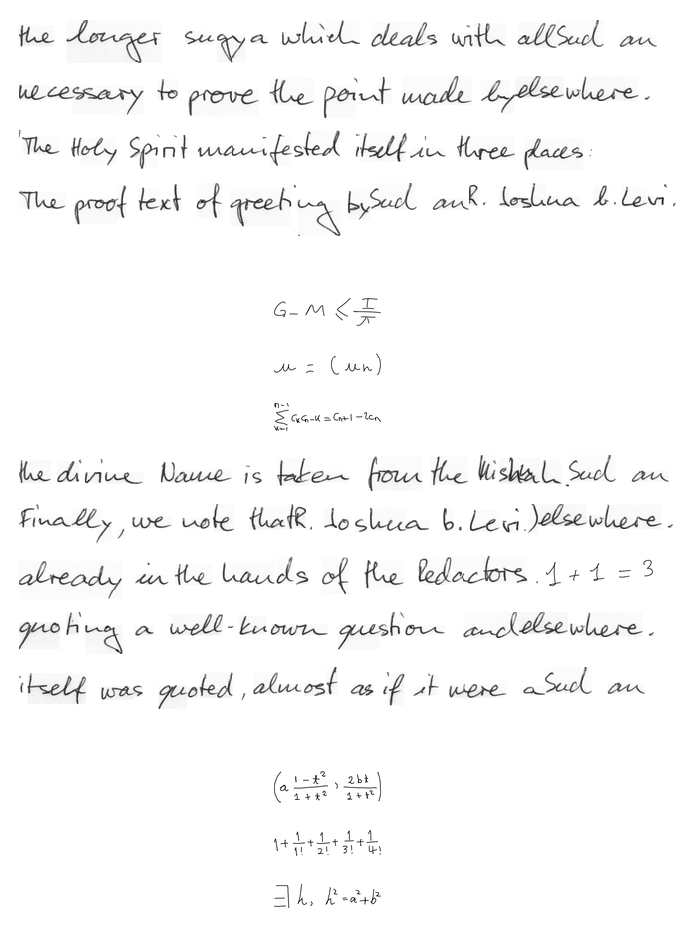 the longer sugya which deals with allSud an
necessary to prove the point made byelsewhere.
'The Holy Spirit manifested itself in three places:
The proof text of greeting bySud anR. Joshua b. Levi.
G - M ≤ I/π
u = (un)
∑_{k=1}^{n-1} CkCn-k = Cn+1 - 2Cn
the divine Name is taken from the Mishnah. Sud an
Finally, we note thatR. Joshua b. Levi.)elsewhere.
already in the hands of the Redactors. 1 + 1 = 3
quoting a well-known question andelsewhere.
itself was quoted, almost as if it were aSud an
(a (1-t²)/(1+t²), 2bt/(1+t²))
1 + 1/1! + 1/2! + 1/3! + 1/4!
∃ h, h² = a² + b²